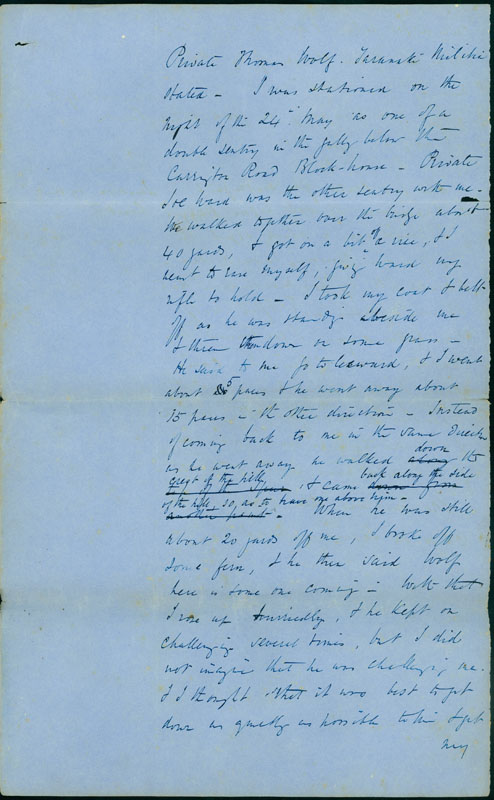 Private Thomas Wolf. Taranaki Militia
stated – I was stationed on the
night of the 24th May as one of a
double sentry in the gully below the
Carrington Road Block-house – Private
Joe Ward was the other sentry with me –
We walked together over the bridge about
40 yards, & got on a bit of a rise, & I
went to ease myself, giving Ward my
rifle to hold – I took my coat & belt
off as he was standing beside me
& threw them down on some grass –
He said to me go to leeward, & I went
about 5 paces & he went away about
15 paces in the other direction – Instead
of coming back to me in the same direction
as he went away he walked down along the
crest of the hill, & came back along the side
of the hill, so, as to have me above him –
another point – When he was still
about 20 yards off me, I broke off
some fern, & he then said Wolf
here is some one coming – With that
I rose up hurriedly, & he kept on
challenging several times, but I did
not imagine that he was challenging me.
& I thought that it was best to get
down as quietly as possible to him & get
my